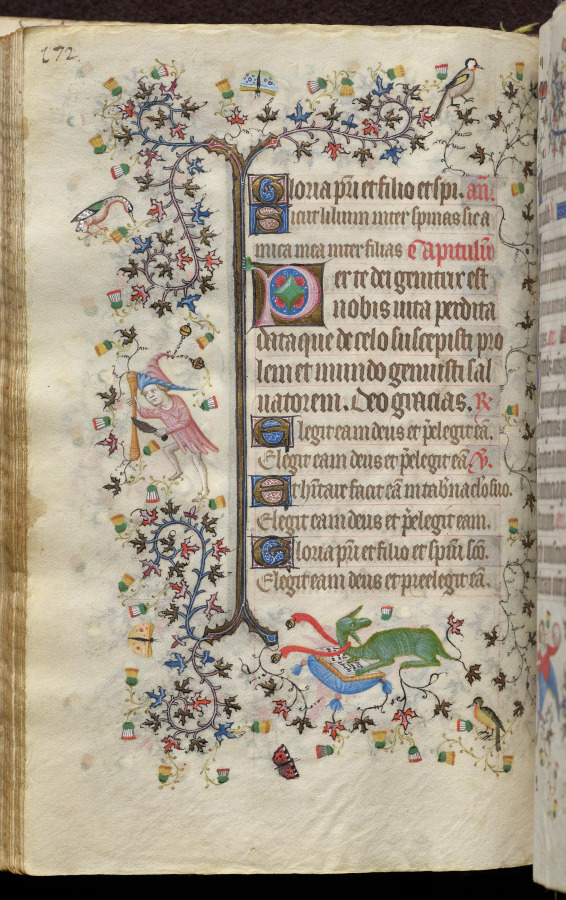 272.
Gloria pri et filio et spi. añ.
Sicut lilium inter spinas sic a
mica mea inter filias Capitulũ
Per te dei genitrix est
nobis uita perdita
data que de celo suscepisti pro
lem et mundo genuisti sal
uatorem. Deo gracias. R
Elegit eam deus et p̃elegit eã.
Elegit eam deus et p̃elegit eã. V.
Et hĩtare facit eã in tab̃naclo suo.
Elegit eam deus et p̃elegit eam.
Gloria pri et filio et spũi scõ.
Elegit eam deus et preelegit eã.